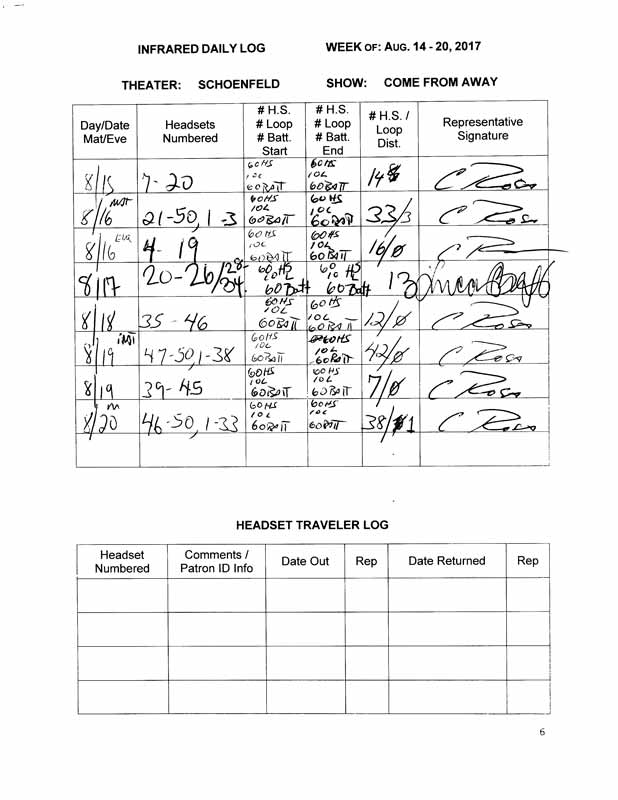 INFRARED DAILY LOG WEEK OF: AUG. 14 - 20, 2017
THEATER: SCHOENFELD SHOW: COME FROM AWAY
Day/Date Mat/Eve Headsets Numbered # H.S. # Loop # Batt. Start # H.S. # Loop # Batt. End # H.S. / Loop Dist. Representative Signature
8/15 7-20 60HS 10L 60BATT 60HS 10L 60BATT 14
8/16 MAT 21-50, 1-3 60HS 10L 60BATT 60HS 10L 60BATT 33/3 C Ross
8/16 EVE 4-19 60HS 10L 60BATT 60HS 10L 60BATT 16/0
8/17 20-26/28-34 60 HS 10L 60 Batt 60 HS 10 60 Batt 13
8/18 35-46 60HS 10L 60BATT 60HS 10L 60BATT 12/0 C Ross
8/19 MAT 47-50, 1-38 60HS 10L 60BATT 60HS 10L 60BATT 42/0 C Ross
8/19 39-45 60HS 10L 60BATT 60HS 10L 60BATT 7/0 C Ross
8/20 M 46-50, 1-33 60HS 10L 60BATT 60HS 10L 60BATT 38/1 C Ross
HEADSET TRAVELER LOG
Headset Numbered Comments / Patron ID Info Date Out Rep Date Returned Rep
6